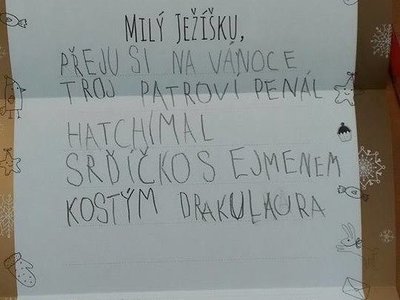 MILÝ JEŽÍŠKU,
PŘEJU SI NA VÁNOCE
TROJ PATROVÍ PENÁL
HATCHIMAL
SRĎÍČKO S EJMENEM
KOSTÝM DRAKULAURA